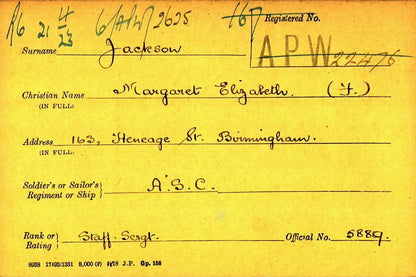 R6 21 4/23 6/APW/2625 167 Registered No.
APW 22476
Surname Jackson
Christian Name Margaret Elizabeth. (F.)
(IN FULL)
Address 163, Heneage St. Birmingham.
(IN FULL)
Soldier's or Sailor's
Regiment or Ship A.S.C.
Rank or
Rating Staff. Sergt. Official No. 5889.
8958 17493/1331 8,000 (8) 1/18 J.P. Gp. 158